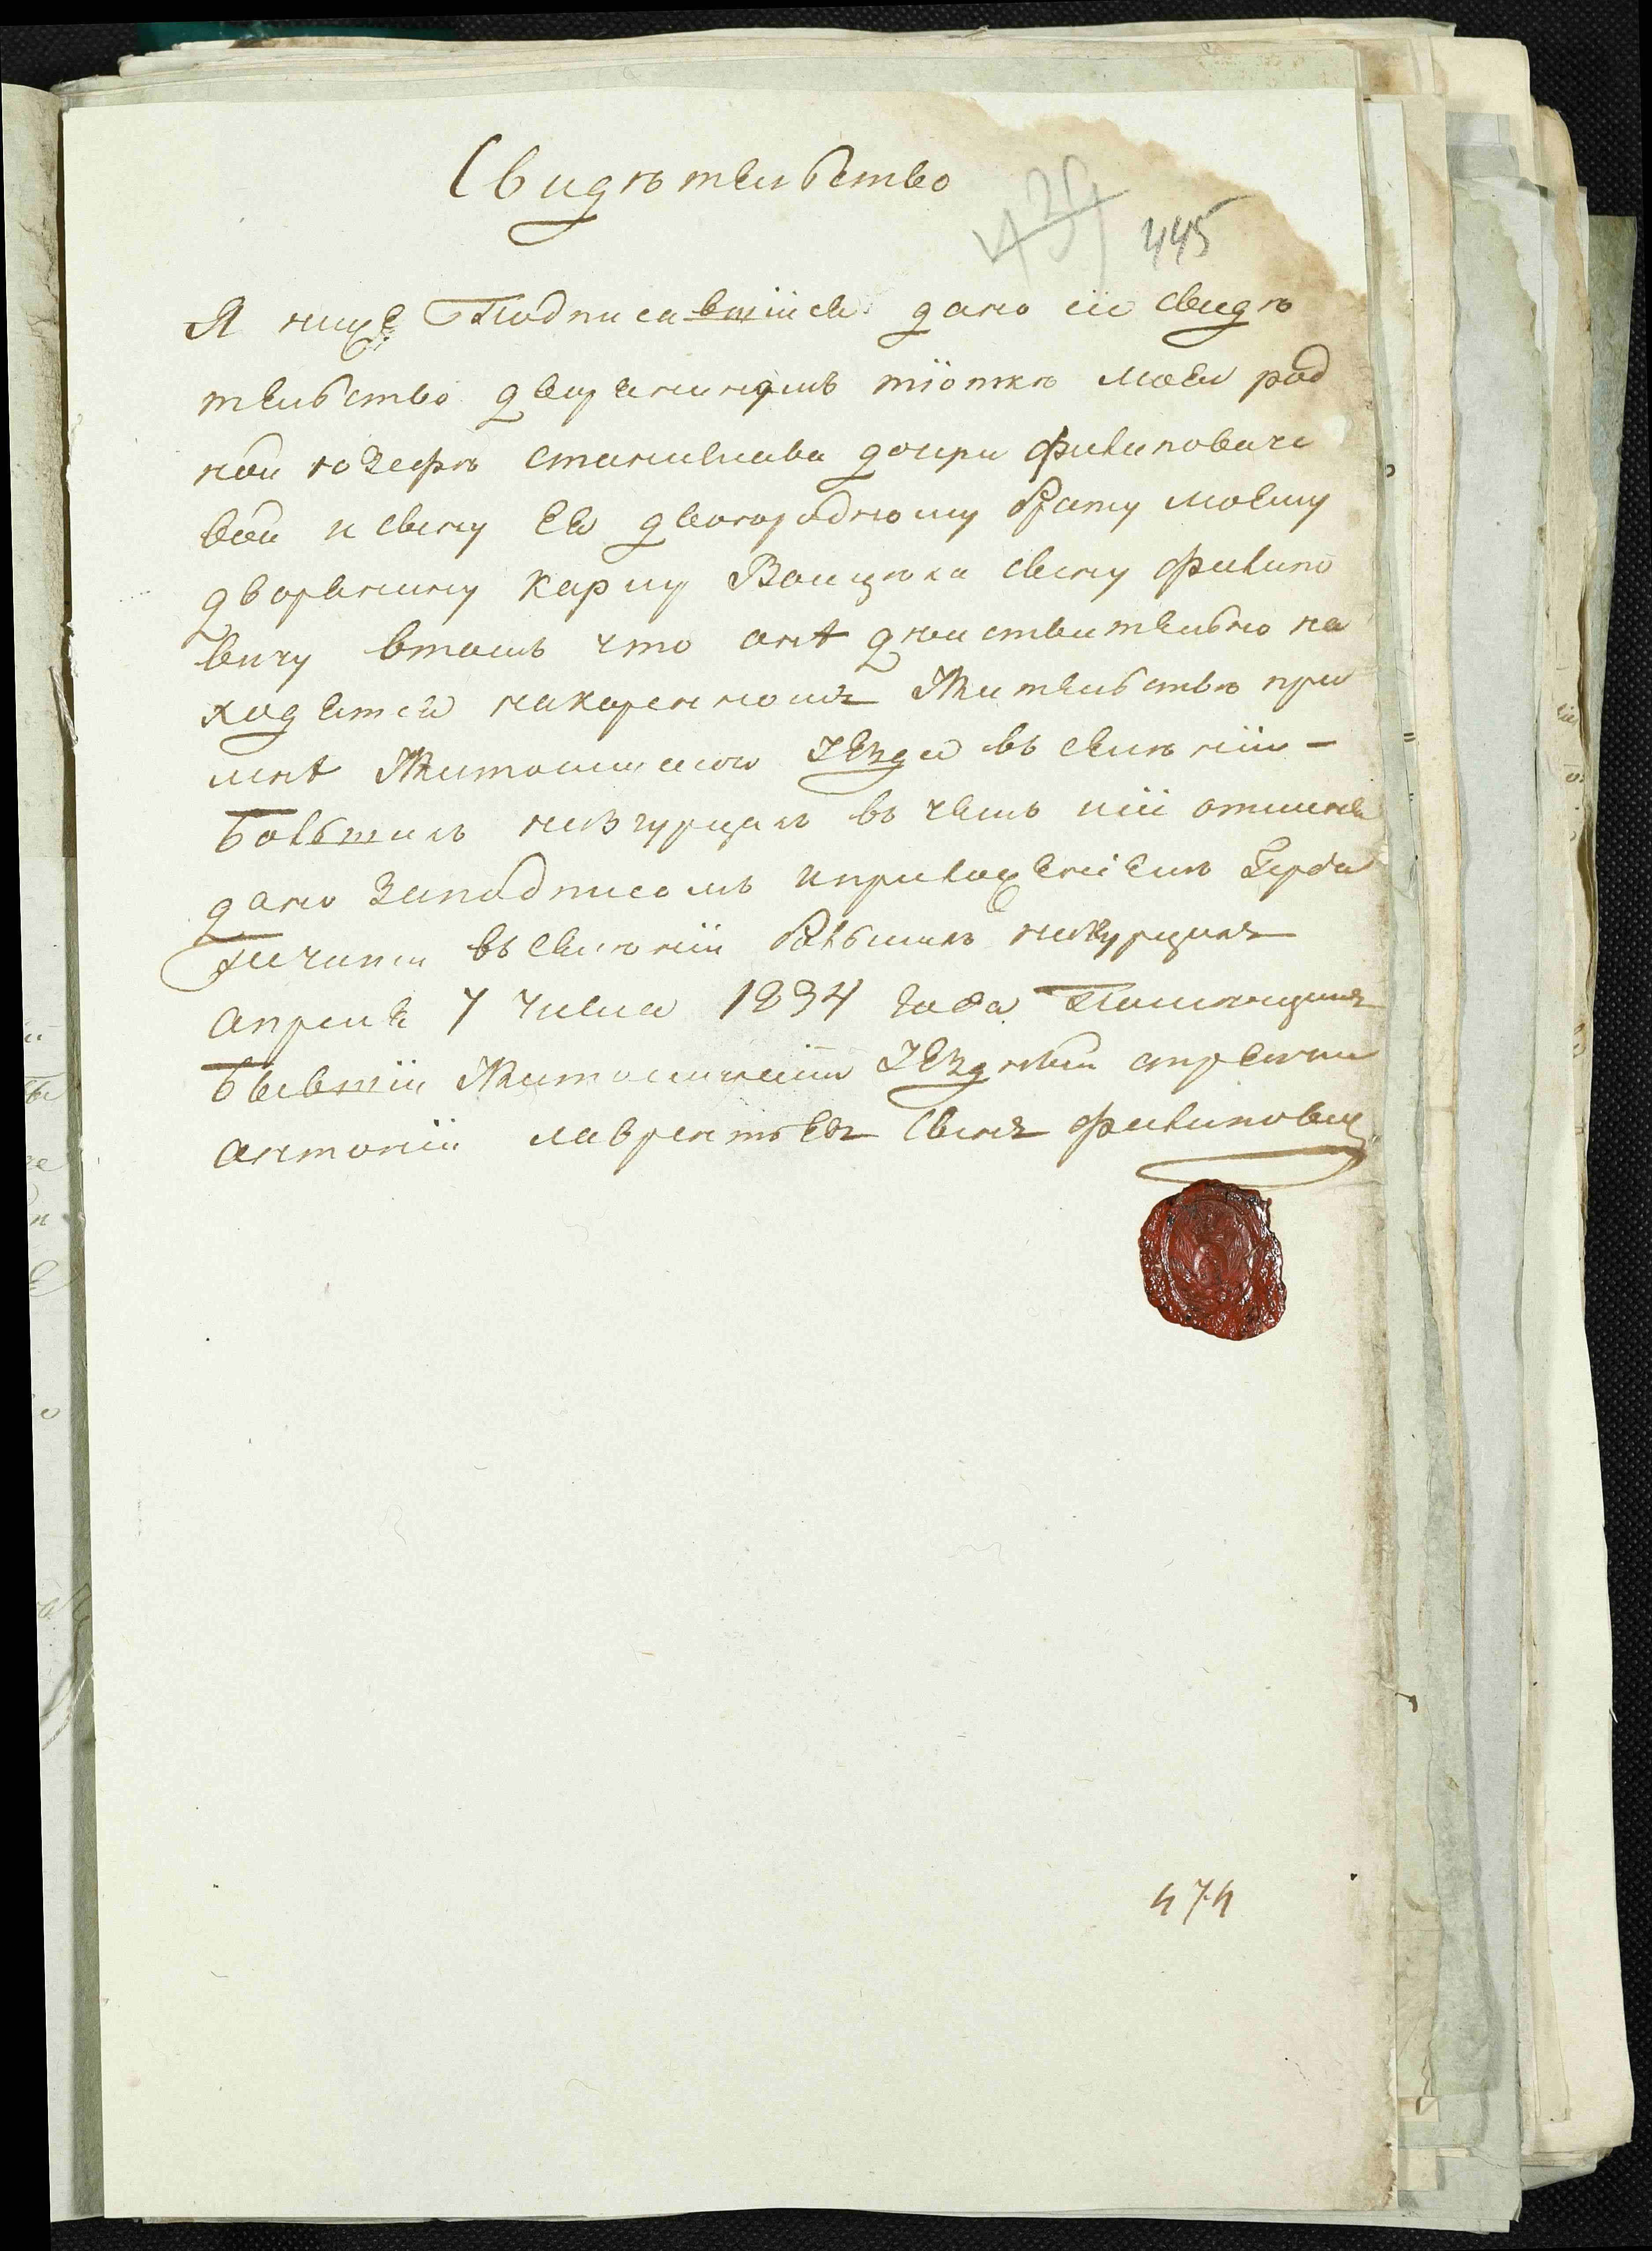 Свидѣтельство
439 445
Я ниже Подписавшійся дано сіе свидѣ
тельство дворянинамъ тіоткѣ моей род
ной юзефѣ станиславa дочри филипoвиче
вой и сыну Ея двоюродному брату моему
дворянину Карлу Воицѣха сыну филипо
вичу втомъ что онѣ дѣиствительно на
ходятся накоренномъ Жительствѣ при
мнѣ Житомирского уезда въ Селѣніи –
Большихъ низгурцахъ въ чемъ имѣ отмѣня
дано Заподписомъ иприложеніемъ Герба
Печати въ Селѣніи Большихъ низгурцахъ
апреля 7 числа 1834 Года Помѣщикъ
бывшіи Житомирскіи уездный
антоніи лаврентьевъ сынъ филипович
474